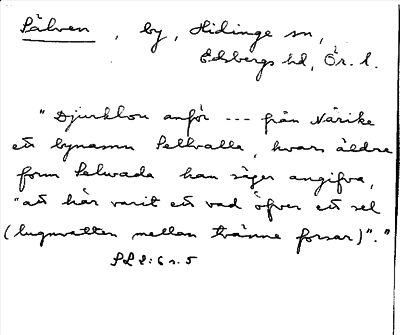 Sälven, by, Hidinge sn,
Edsbergs hd, Ör. l.
"Djurklou anför --- från Närike
ett bynamn Sellvalla, hvars äldre
form Selwada han säger angifva,
"att här varit ett vad öfver ett sel
(lugnvatten mellan tvänne forsar)"."
SLS: 6 s. 5